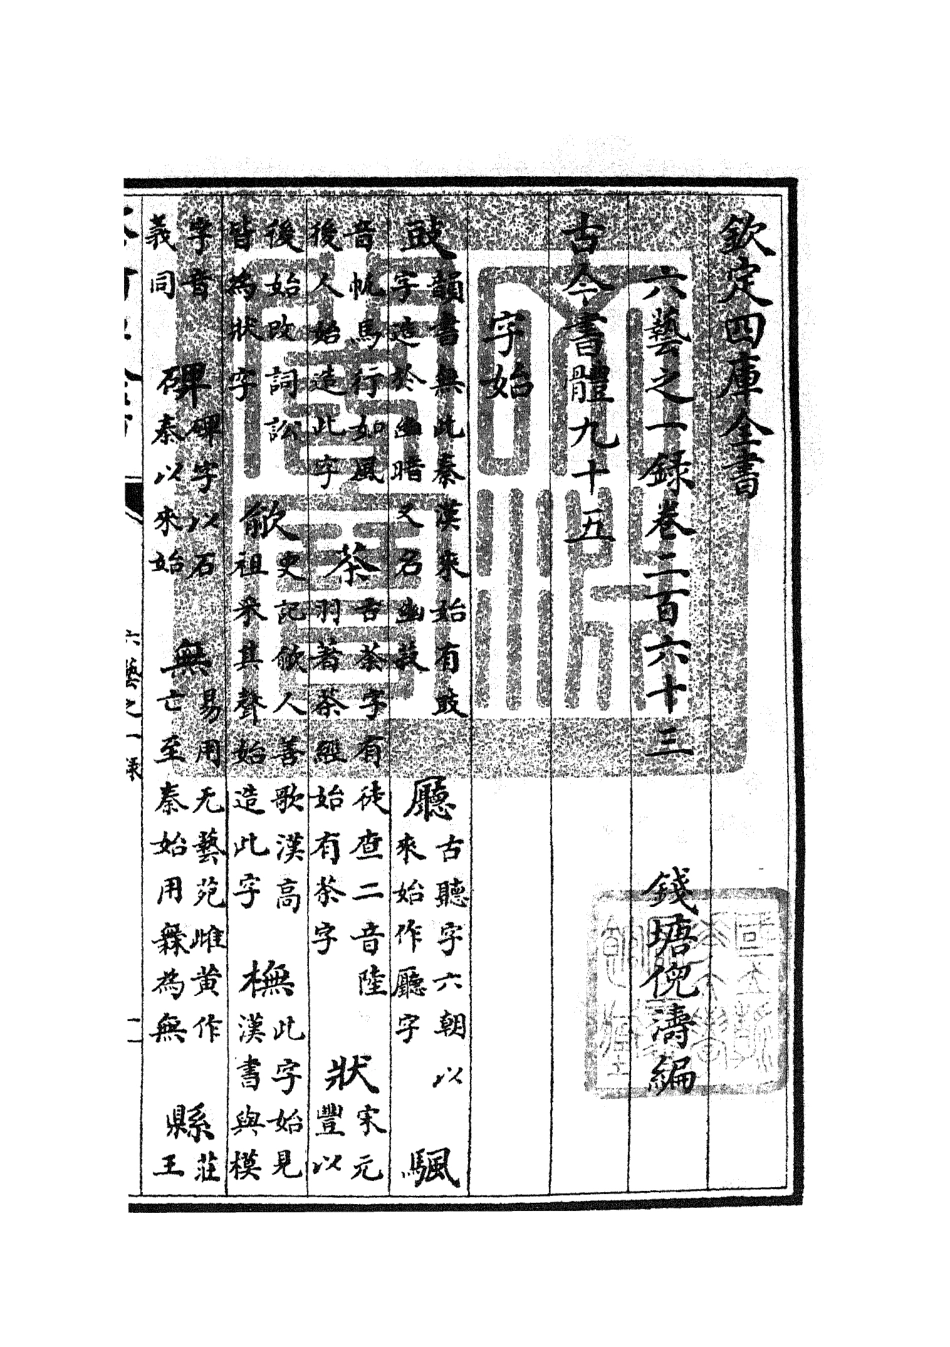 欽定四庫全書
六藝之一録卷二百六十三 錢塘倪濤編
古今書體九十五
字始
豉 韻書無此秦漢來始有豉字造於幽暗又名幽 廳 古聽字六朝以來始作廳字 颿
音帆馬行如風後人始造此字 茶 古荼字有徒查二音陸羽著茶經始有茶字 狀 宋元豐以
後始改詞訟皆為狀字 歈 史記歈人善歌漢高祖采其聲始造此字 橅 此字始見漢書與模
字音義同 碑 碑字以石秦以來始 無 易用无藝苑雌黄作亡至秦始用蕪為無 縣 莊王
六藝之一録